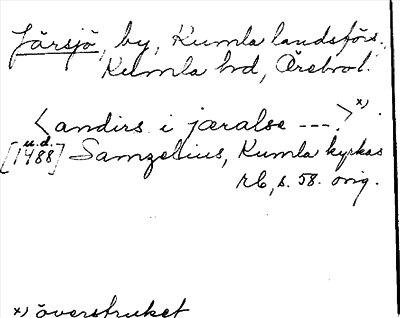 Järsjö, by, Kumla landsförs.,
Kumla hd, Örebro l.
<andirs i jæralse ---.> x)
[u.d. 1488] Samzelius, Kumla kyrkas
rb, s. 58. orig.
x) överstruket